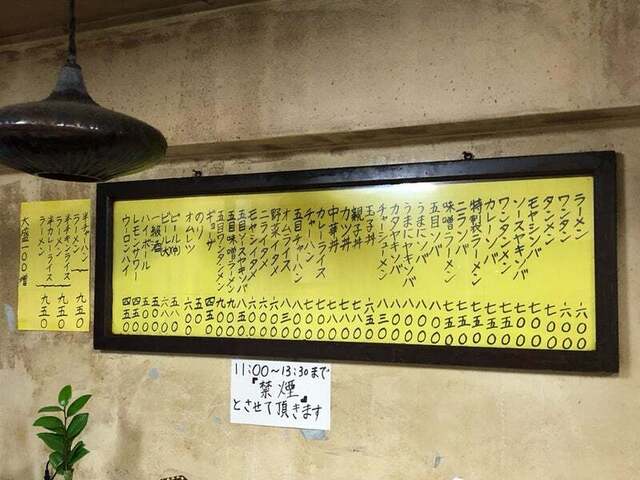 ラーメン 六〇〇
ワンタン 六〇〇
タンメン 七〇〇
モヤシソバ 七〇〇
ソースヤキソバ
ワンタンメン
カレーソバ
特製ラーメン 七五〇
ニラソバ 七五〇
味噌ラーメン 七五〇
五目ソバ 八〇〇
うまにソバ 八〇〇
うまにヤキソバ 八〇〇
カタヤキソバ 八三〇
チャーシューメン 八三〇
玉子丼 六五〇
親子丼
カツ丼
中華丼
カレーライス
チャーハン
五目チャーハン
オムライス 八三〇
野菜イタメ 六〇〇
ニライタメ 六〇〇
モヤシイタメ 六〇〇
五目ソースヤキソバ 八五〇
五目味噌ラーメン 九〇〇
五目ワンタンメン 九〇〇
ギョーザ 四五〇
のり
オムレツ 六〇〇
ビール(中) 五八〇
ビール(大) 六八〇
一級酒 五〇〇
ハイボール 五〇〇
レモンサワー 四五〇
ウーロンハイ 四五〇
半チャーハン
ラーメン 九五〇
半チキンライス
ラーメン 九五〇
半カレーライス
ラーメン 九五〇
大盛一〇〇増
11:00〜13:30まで
『禁煙』
とさせて頂きます